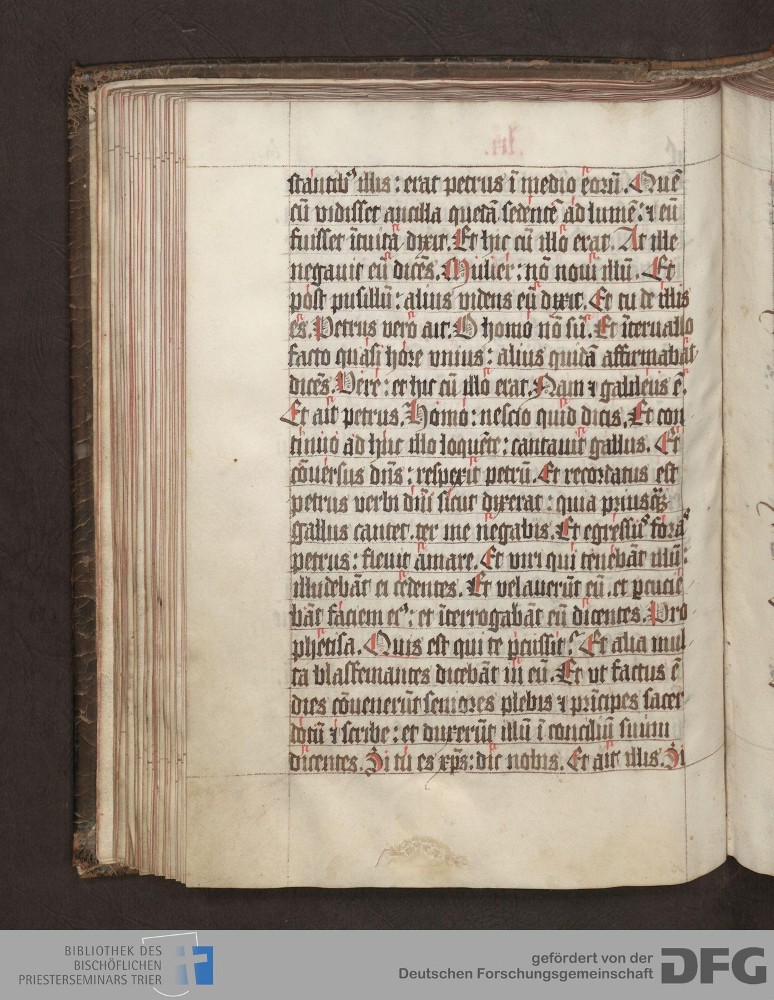 .lii.
stantib⁹ illis : erat petrus ī medio eorū. Quē
cū vidisset ancilla quetā sedentē ad lumē : ⁊ eū
fuisset ītuita dixit. Et hic cū illo erat. At ille
negauit eū dicēs. Mulier : nō noui illū. Et
post pusillū : alius videns eū dixit. Et tu de illis
es. Petrus vero ait. O homo nō sū. Et īteruallo
facto quasi hore vnius : alius quidā affirmabat
dicēs. Vere : et hic cū illo erat. Nam ⁊ galileus ē.
Et ait petrus. Homo : nescio quid dicis. Et con
tinuo ad huc illo loquēte : cantauit gallus. Et
cōuersus dn̄s : respexit petrū. Et recordatus est
petrus verbi dn̄i sicut dixerat : quia priusq̄ꝫ
gallus cantet. ter me negabis. Et egressu⁹ foras
petrus : fleuit amare. Et viri qui tenebāt illū :
illudebāt ei cedentes. Et velauerūt eū. et ꝑcucie
bāt faciem ei⁹ : et īterrogabāt eū dicentes. Pro
phetisa. Quis est qui te ꝑcussit ? Et alia mul
ta blasfemantes dicebāt in eū. Et vt factus ē
dies cōuenerūt seniores plebis ⁊ prīcipes sacer
dotū ⁊ scribe : et duxerūt illū ī conciliū suum
dicentes. Si tu es xp̄s : dic nobis. Et ait illis. Si
BIBLIOTHEK DES
BISCHÖFLICHEN
PRIESTERSEMINARS TRIER
gefördert von der
Deutschen Forschungsgemeinschaft
DFG